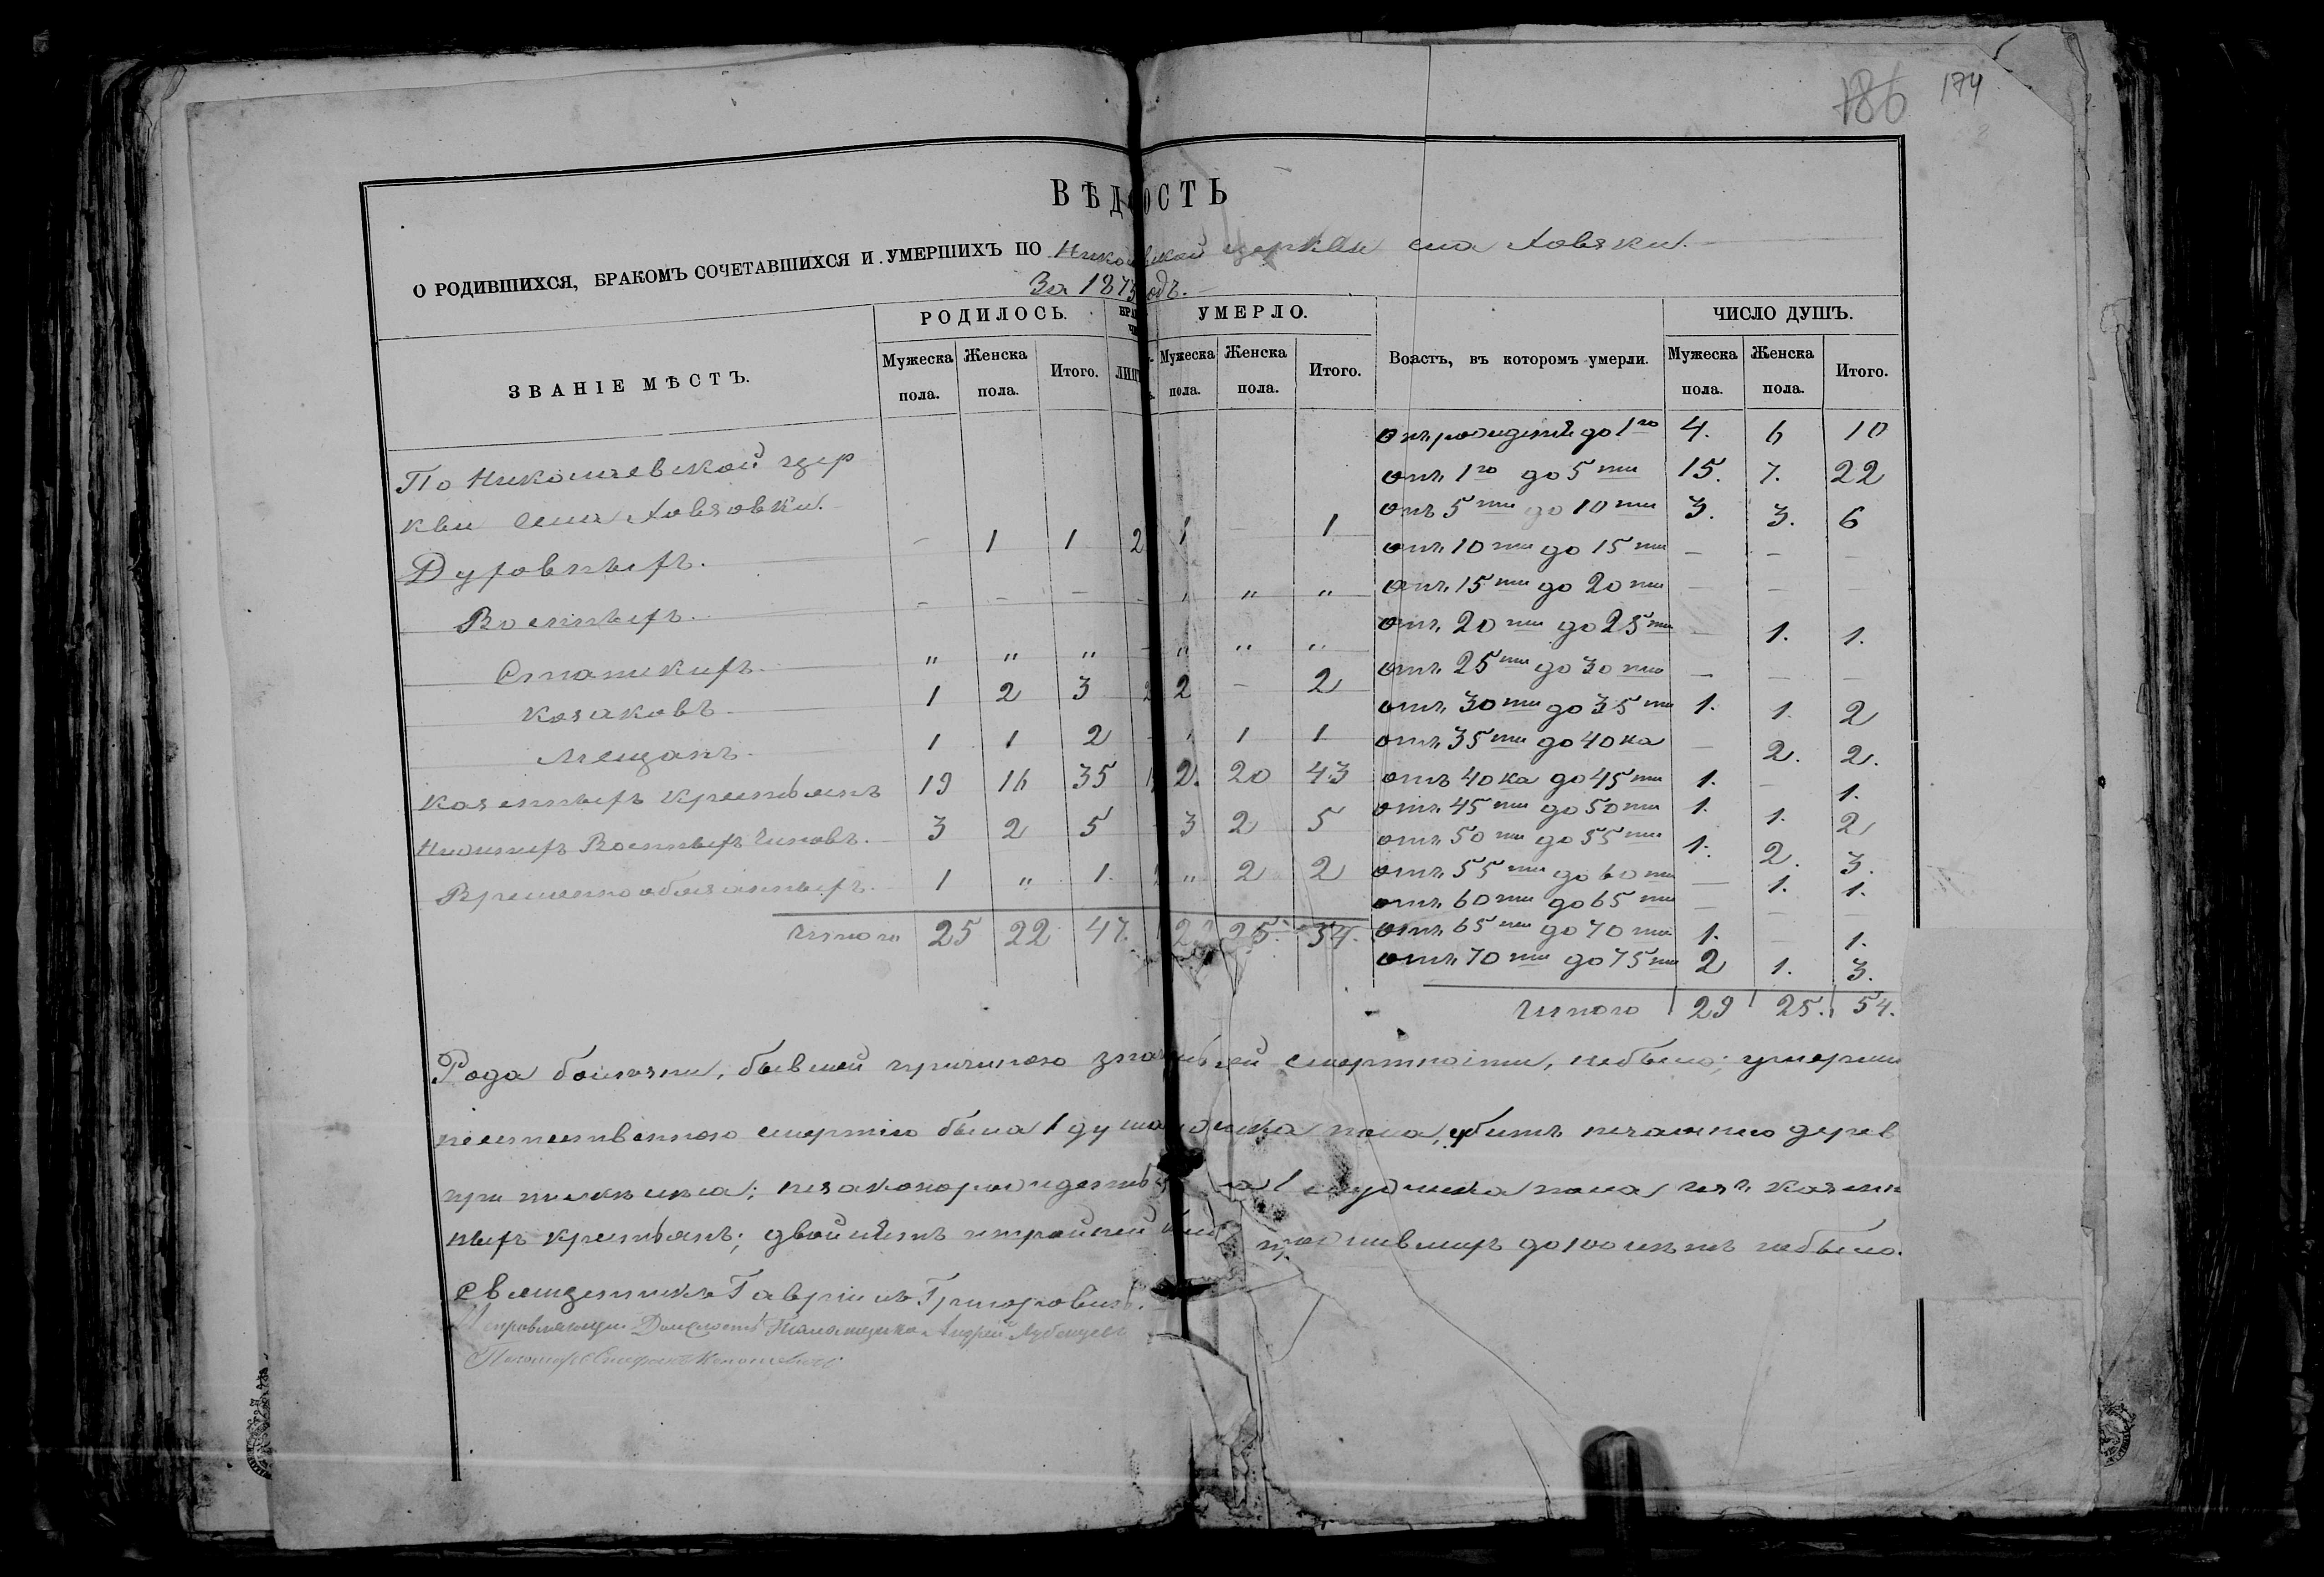 186 174
ВѢДОСТЬ
О РОДИВШИХСЯ, БРАКОМЪ СОЧЕТАВШИХСЯ И УМЕРШИХЪ ПО церкви
За 1873
РОДИЛОСЬ. БРА УМЕРЛО. ЧИСЛО ДУШЪ.
ЗВАНІЕ МѢСТЪ. Мужеска пола. Женска пола. Итого. ЛИЦ Мужеска пола. Женска пола. Итого. Воастъ, въ которомъ умерли. Мужеска пола. Женска пола. Итого.
отъ рожденія до 1го 4. 6 10
По Николаевской цер
отъ 1го до 5ти 15. 7. 22
кви села
отъ 5ти до 10ти 3. 3. 6
Духовныхъ. - 1 1 2 1 - 1
отъ 10ти до 15ти - - -
Военныхъ. - - - - " " "
отъ 15ти до 20ти - - -
отъ 20ти до 25ти - 1. 1.
Статскихъ. " " " - " " "
отъ 25ти до 30ти - - -
Козаковъ. 1 2 3 2 2 - 2
отъ 30ти до 35ти 1. 1. 2
Мещанъ. 1 1 2 - " 1 1
отъ 35ти до 40ка - 2. 2.
Казенныхъ крестьянъ 19 16 35 2. 20 43
отъ 40ка до 45ти 1. - 1.
отъ 45ти до 50ти 1. 1. 2
Нижнихъ Военныхъ Чиновъ. 3 2 5 - 3 2 5
отъ 50ти до 55ти 1. 2. 3.
Временнообязанныхъ. 1 " 1. " 2 2
отъ 55ти до 60ти - 1. 1.
отъ 60ти до 65ти - - -
Итого 25 22 47. 2 25. 54.
отъ 65ти до 70ти 1. - 1.
отъ 70ти до 75ти 2 1. 3.
Итого 29 25. 54.
Рода болезни, бывшей причиною смертности, небыло; умерши
неестественною смертію была 1 душа пола, убитъ нечаянно дерев
при незаконорожденны 1 пола изъ казен
ныхъ крестьянъ; двойнѣтъ и тройней до 100 лѣтъ небыло.
Священникъ Гавріилъ Григоровичъ.
Исправляющи Должность Андрей
Пономарь Стефанъ